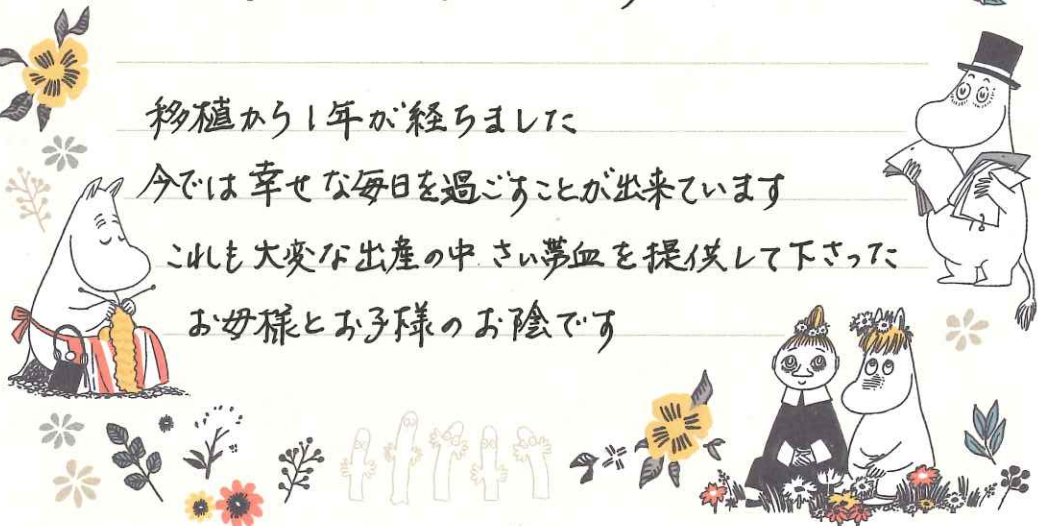 移植から1年が経ちました
今では幸せな毎日を過ごすことが出来ています
これも大変な出産の中 さい帯血を提供して下さった
お母様とお子様のお陰です